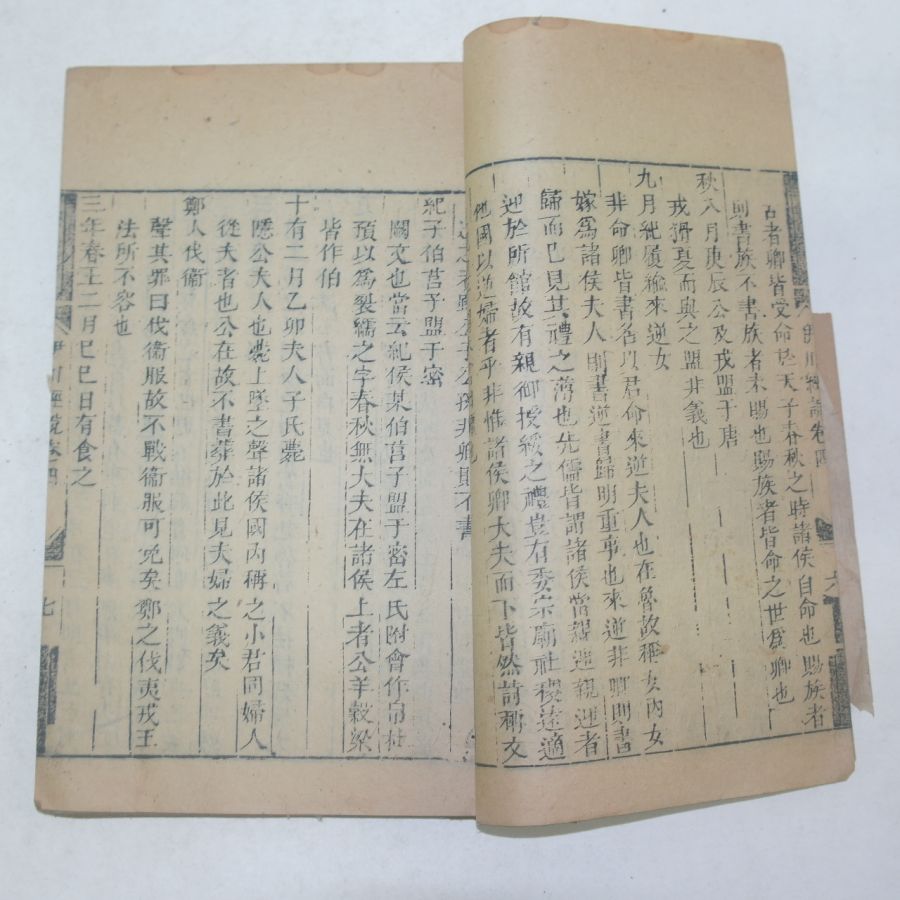 古者卿皆受命於天子春秋之時諸侯自命也賜族者
則書族不書族者未賜也賜族者皆命之世爲卿也
秋八月庚辰公及戎盟于唐
戎猾夏而與之盟非義也
九月紀履緰來逆女
非命卿皆書名以君命來逆夫人也在魯故稱女內女
嫁爲諸侯夫人則書逆書歸明重事也來逆非卿則書
歸而已見其禮之薄也先儒皆謂諸侯當親迎親迎者
迎於所館故有親御授綏之禮豈有委宗廟社稷遠適
他國以逆婦者乎非惟諸侯卿大夫而下皆然詩稱文
非卿則不書
紀子伯莒子盟于密
闕文也當云紀侯某伯莒子盟于密左氏附會作帛杜
預以爲裂繻之字春秋無大夫在諸侯上者公羊穀梁
皆作伯
十有二月乙卯夫人子氏薨
隱公夫人也薨上墜之聲諸侯國內稱之小君同婦人
從夫者也公在故不書葬於此見夫婦之義矣
鄭人伐衞
聲其罪曰伐衞服故不戰衞服可免矣鄭之伐夷戎王
法所不容也
三年春王二月己巳日有食之
伊川經說卷四
七